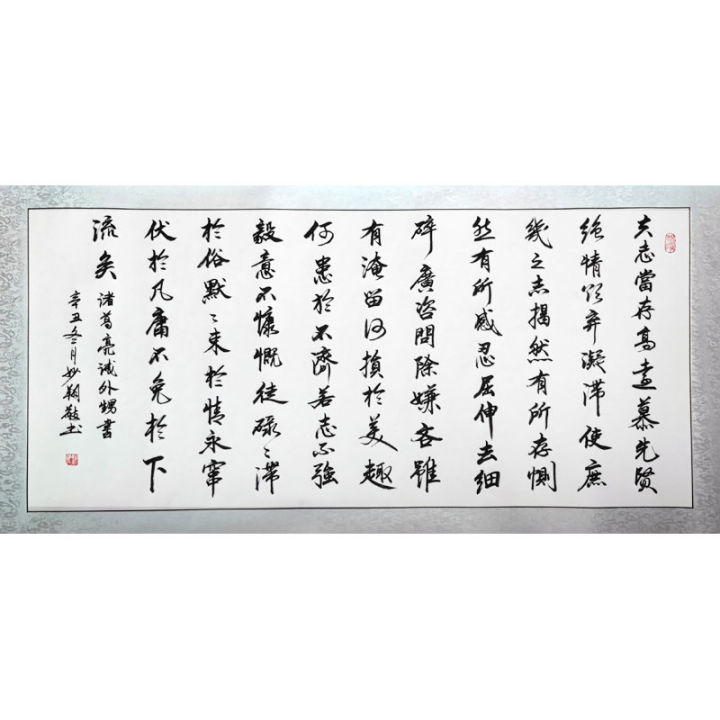 夫志當存高遠慕先賢
絕情欲棄凝滯使庶
幾之志揭然有所存惻
然有所感忍屈伸去細
碎廣咨問除嫌吝雖
有淹留何損於美趣
何患於不濟若志不強
毅意不慷慨徒碌〻滯
於俗默〻束於情永竄
伏於凡庸不免於下
流矣
諸葛亮誡外甥書
辛丑冬月妙翔敬書